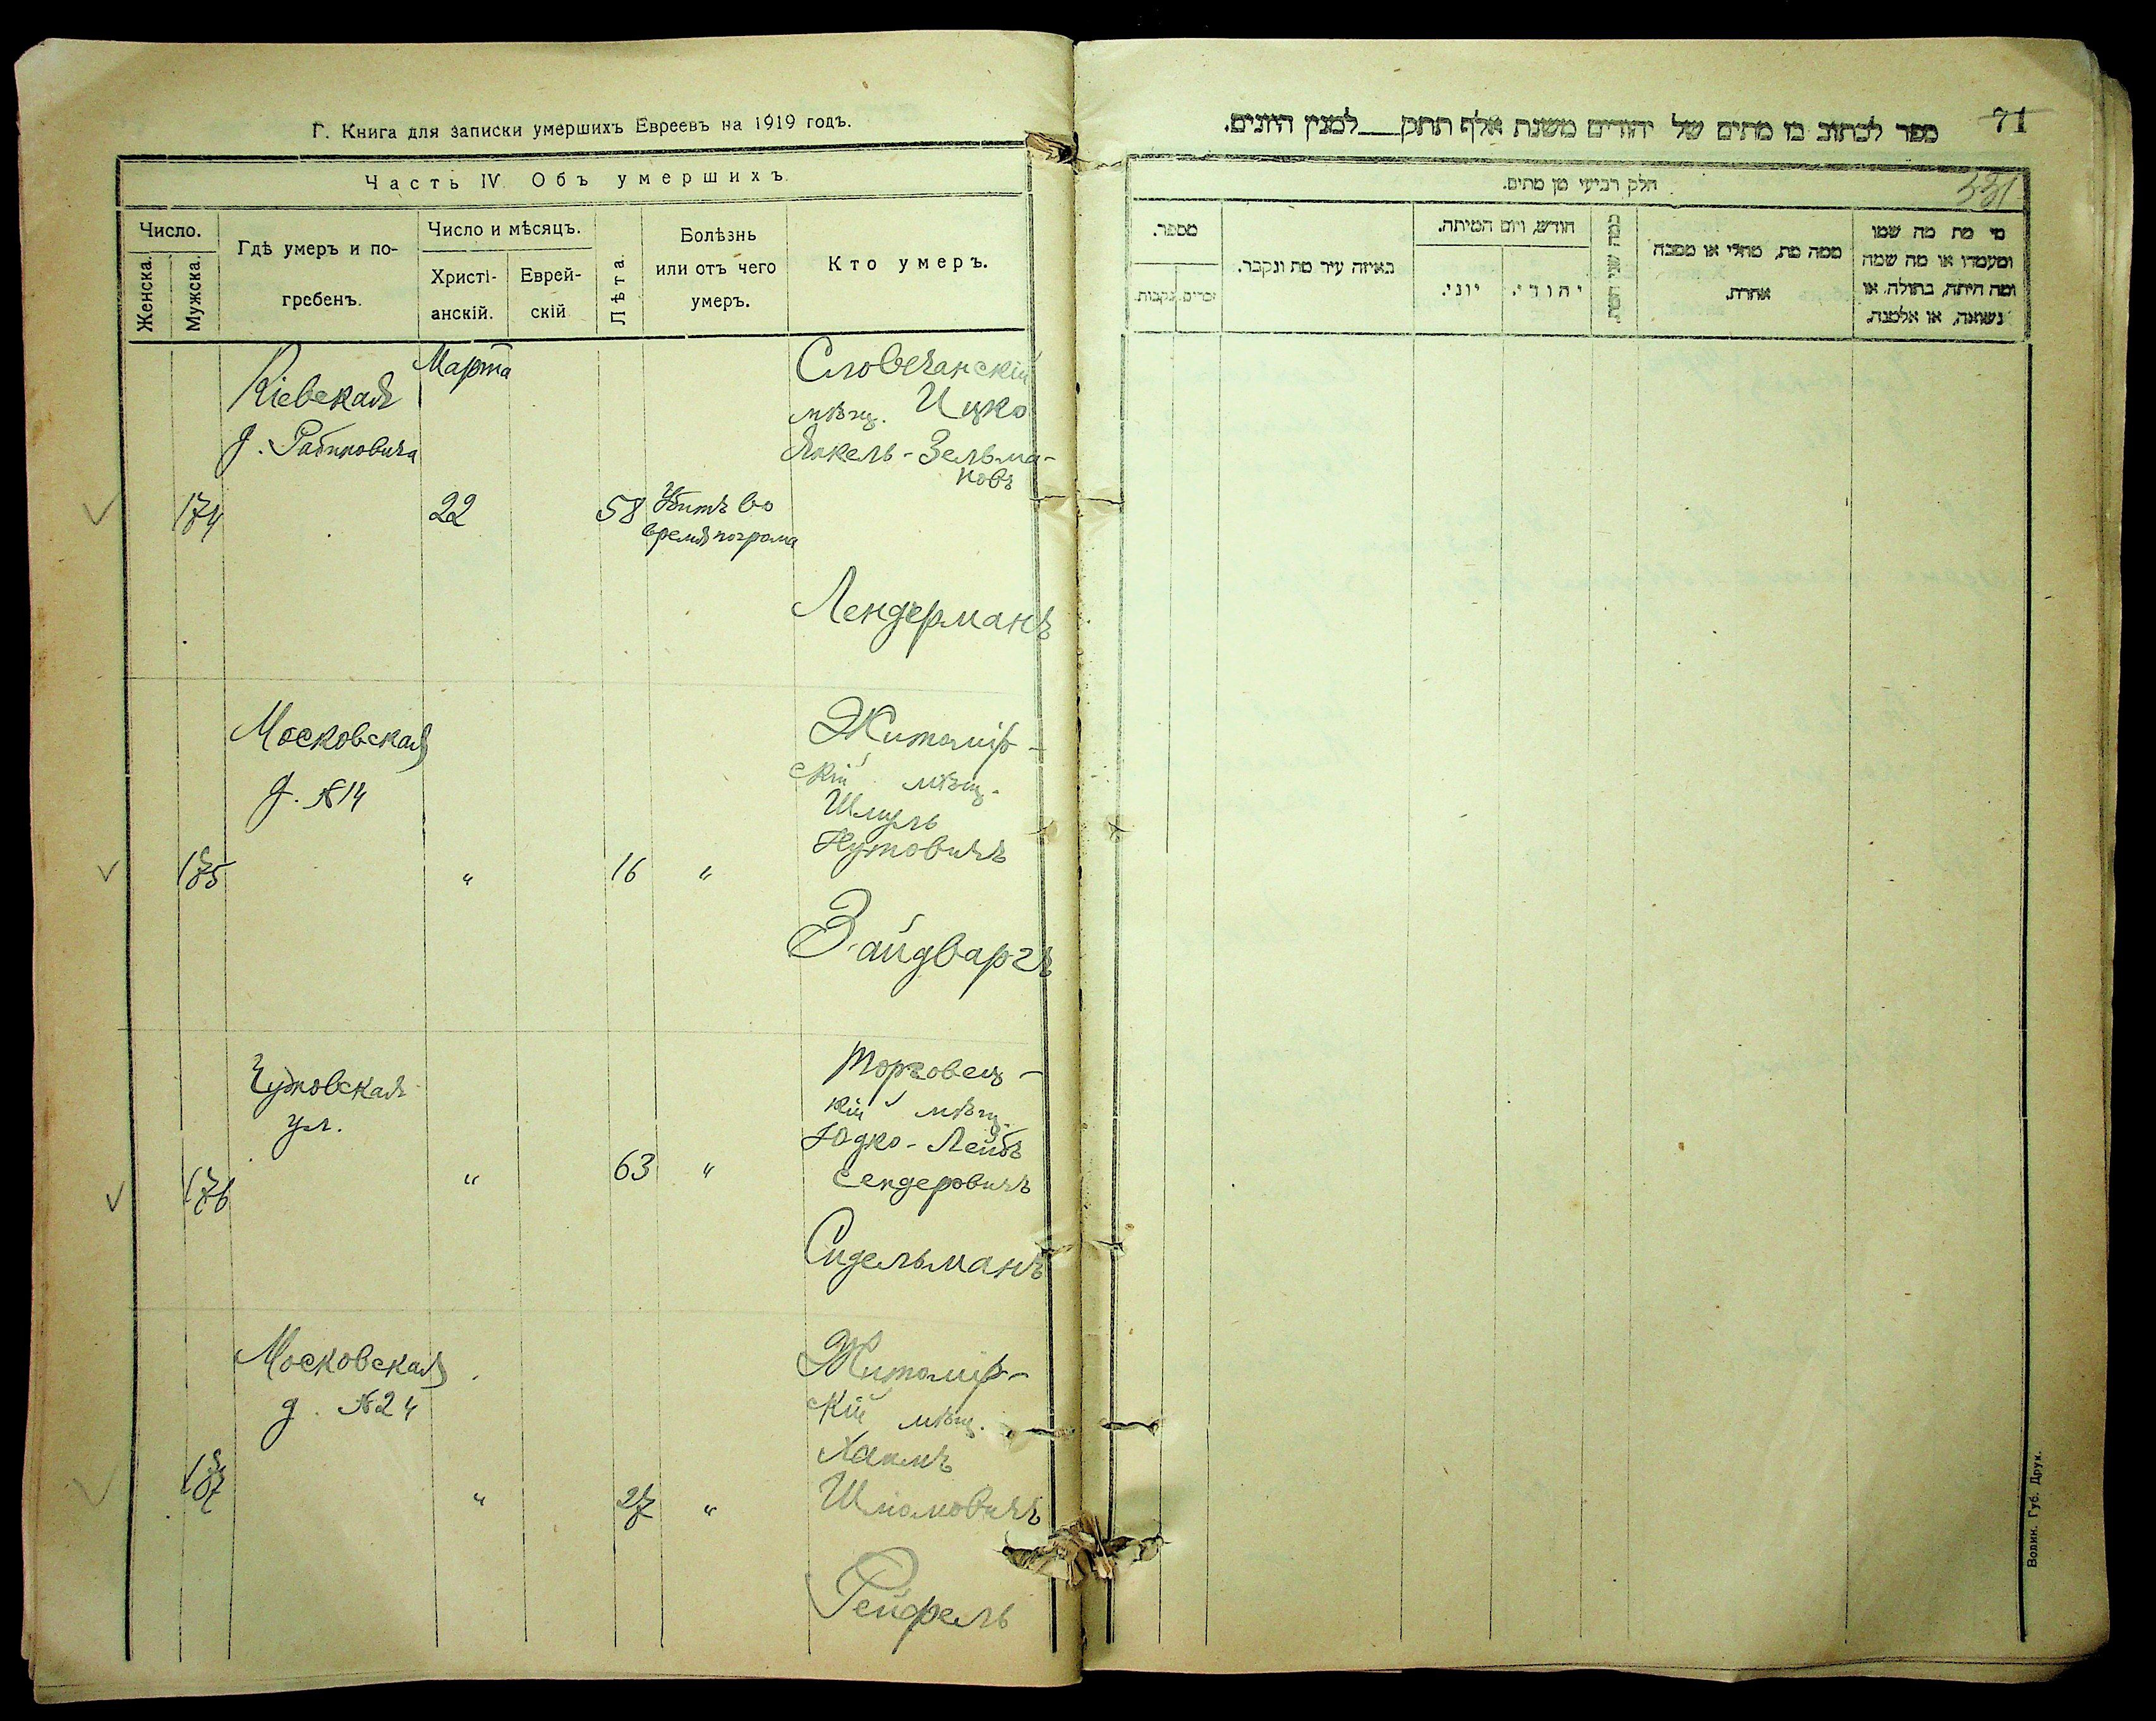 Г. Книга для записки умершихъ Евреевъ на 1919 годъ.
Часть IV. Объ умершихъ
Число.
Женска.
Мужска.
Гдѣ умеръ и по-
гребенъ.
Число и мѣсяцъ.
Христі-
анскій.
Еврей-
скій
Лѣта
Болѣзнь
или отъ чего
умеръ.
Кто умеръ.
Кіевская
д. Рабиновича
Марта
174
22
58
Убитъ во
время погрома
Словечанскій
мѣщ. Ицко
Янкель-Зельма-
новъ
Лендерманъ
Московская
д. №14
175
"
16
"
Житомір-
скій мѣщ.
Шмуль
Нутовичъ
Зайдваргъ
Чудновская
ул.
176
"
63
"
Торговец-
кій мѣщ.
Юдко-Лейбъ
Сендеровичъ
Сидельманъ
Московская
д. №24
"
27
"
Житомір-
скій мѣщ.
Хаимъ
Шломовичъ
Рейфель
71
ספר לכתוב בו מתים של יהודים משנת אלף תתק למנין היונים.
331
חלק רביעי מן מתים.
מי מת מה שמו
ומעמדו או מה שמה
ומה היתה, בתולה, או
נשואה, או אלמנה.
ממה מת, מחלי או מסבה
אחרת.
כמה שני
חודש, ויום המיתה.
יהודי.
יוני.
באיזה עיר מת ונקבר.
מספר.
זכרים
נקבות.
Волин. Губ. Друк.